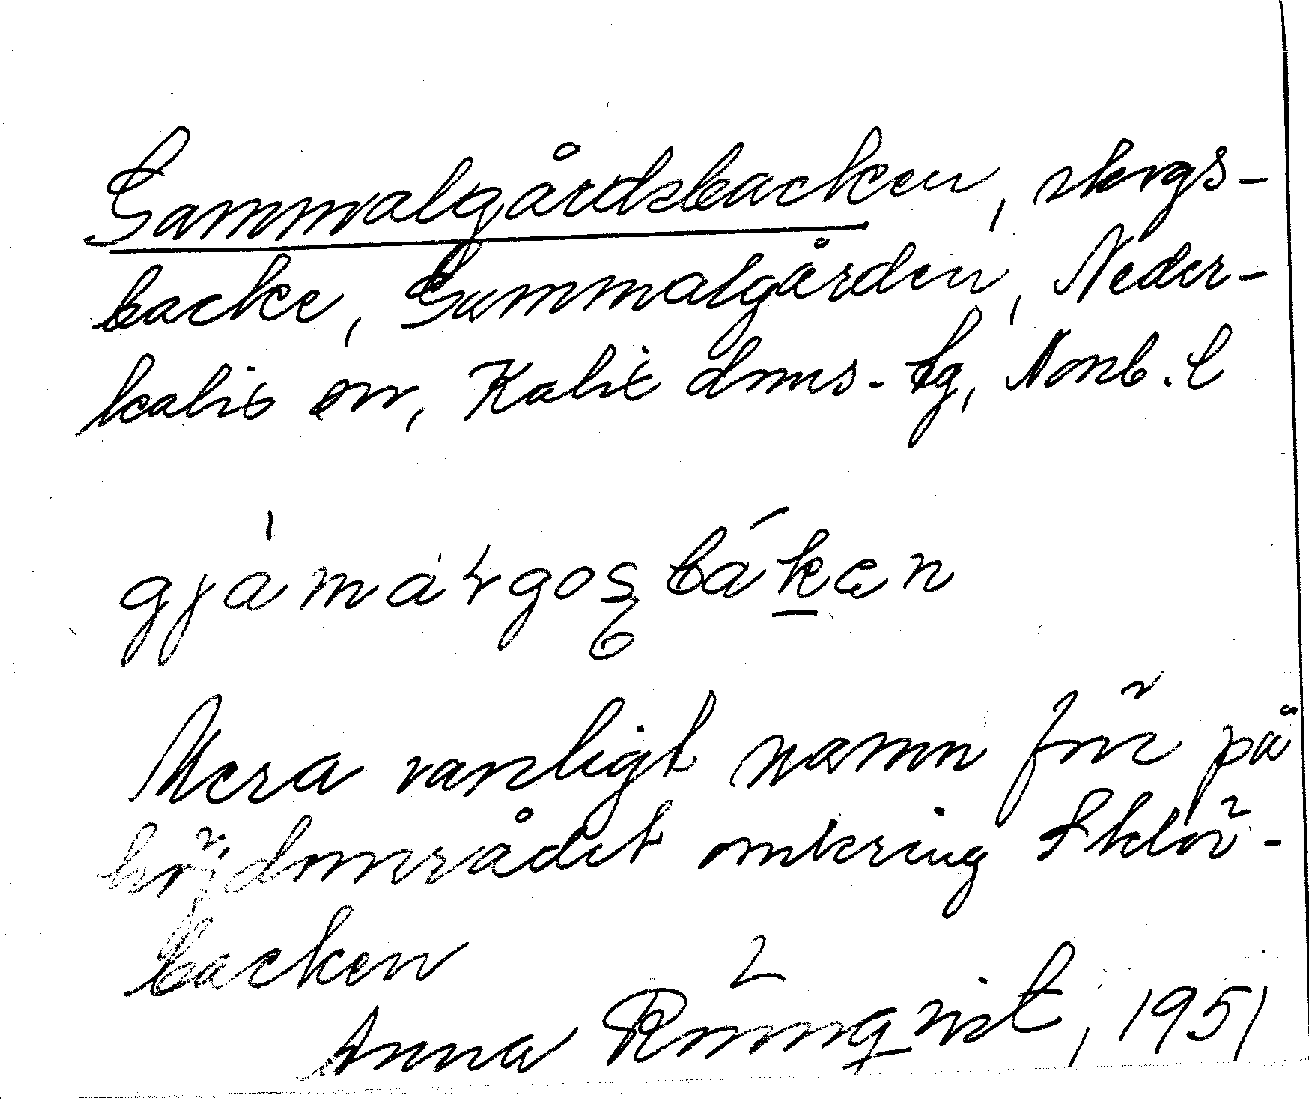 Gammalgårdsbacken, skogs-
backe, Gammalgården, Neder-
kalix sn, Kalix doms. tg, Norrb. l
gjámárgos bákan
Mera vanligt namn för på
höjdområdet omkring Sklöv-
backen
Anna Rönnqvist, 1951